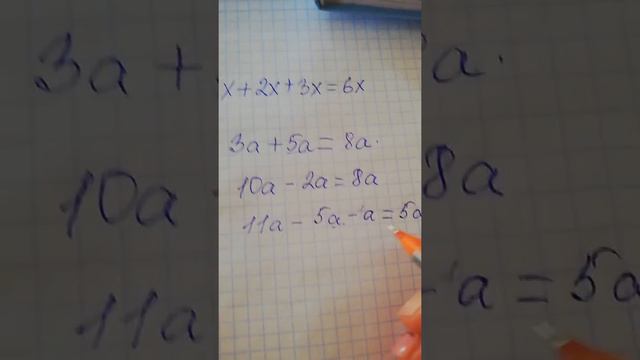 x + 2x + 3x = 6x
3a + 5a = 8a.
10a - 2a = 8a
11a - 5a - a = 5a